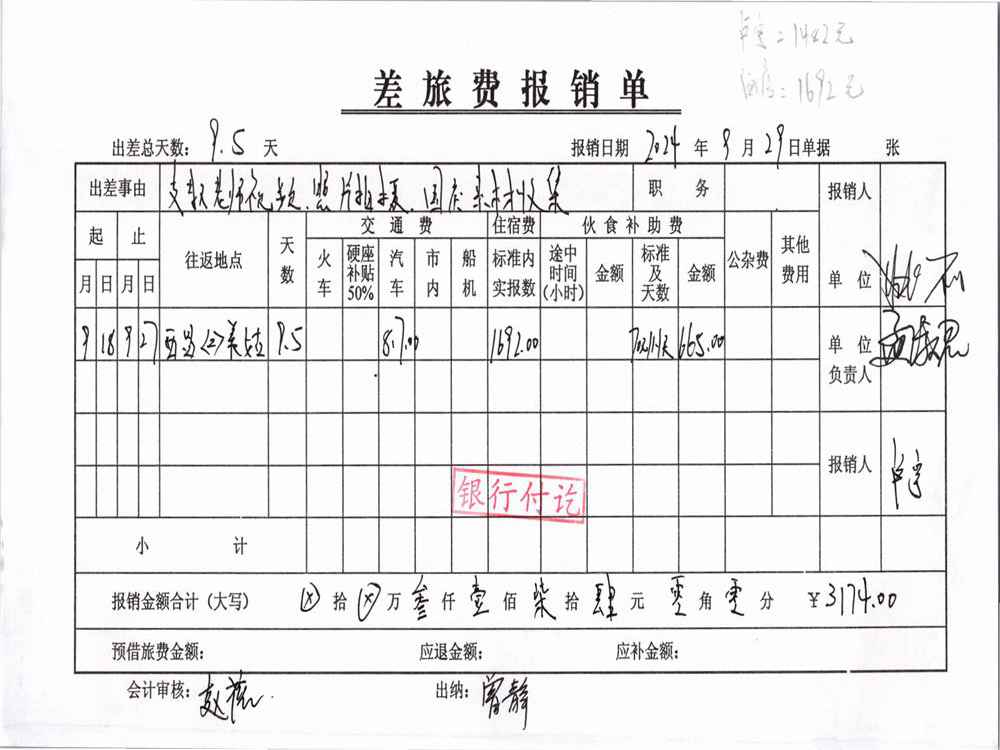 1482元
1692元
差旅费报销单
出差总天数: 9.5 天 报销日期 2024 年 9 月 29 日 单据 张
出差事由 支教老师 照片拍摄、国庆素材收集 职务 报销人
起 止 往返地点 天数 交通费 住宿费 伙食补助费 公杂费 其他费用
月 日 月 日 火车 硬座补贴50% 汽车 市内 船机 标准内实报数 途中时间(小时) 金额 标准及天数 金额 单位
9 18 9 27 西昌 美姑 9.5 817.00 1692.00 70元/天 665.00 单位负责人
报销人
银行付讫
小计
报销金额合计(大写) ⊗ 拾 ⊗ 万 叁 仟 壹 佰 柒 拾 肆 元 零 角 零 分 ¥3174.00
预借旅费金额: 应退金额: 应补金额:
会计审核: 赵 出纳: 曾静